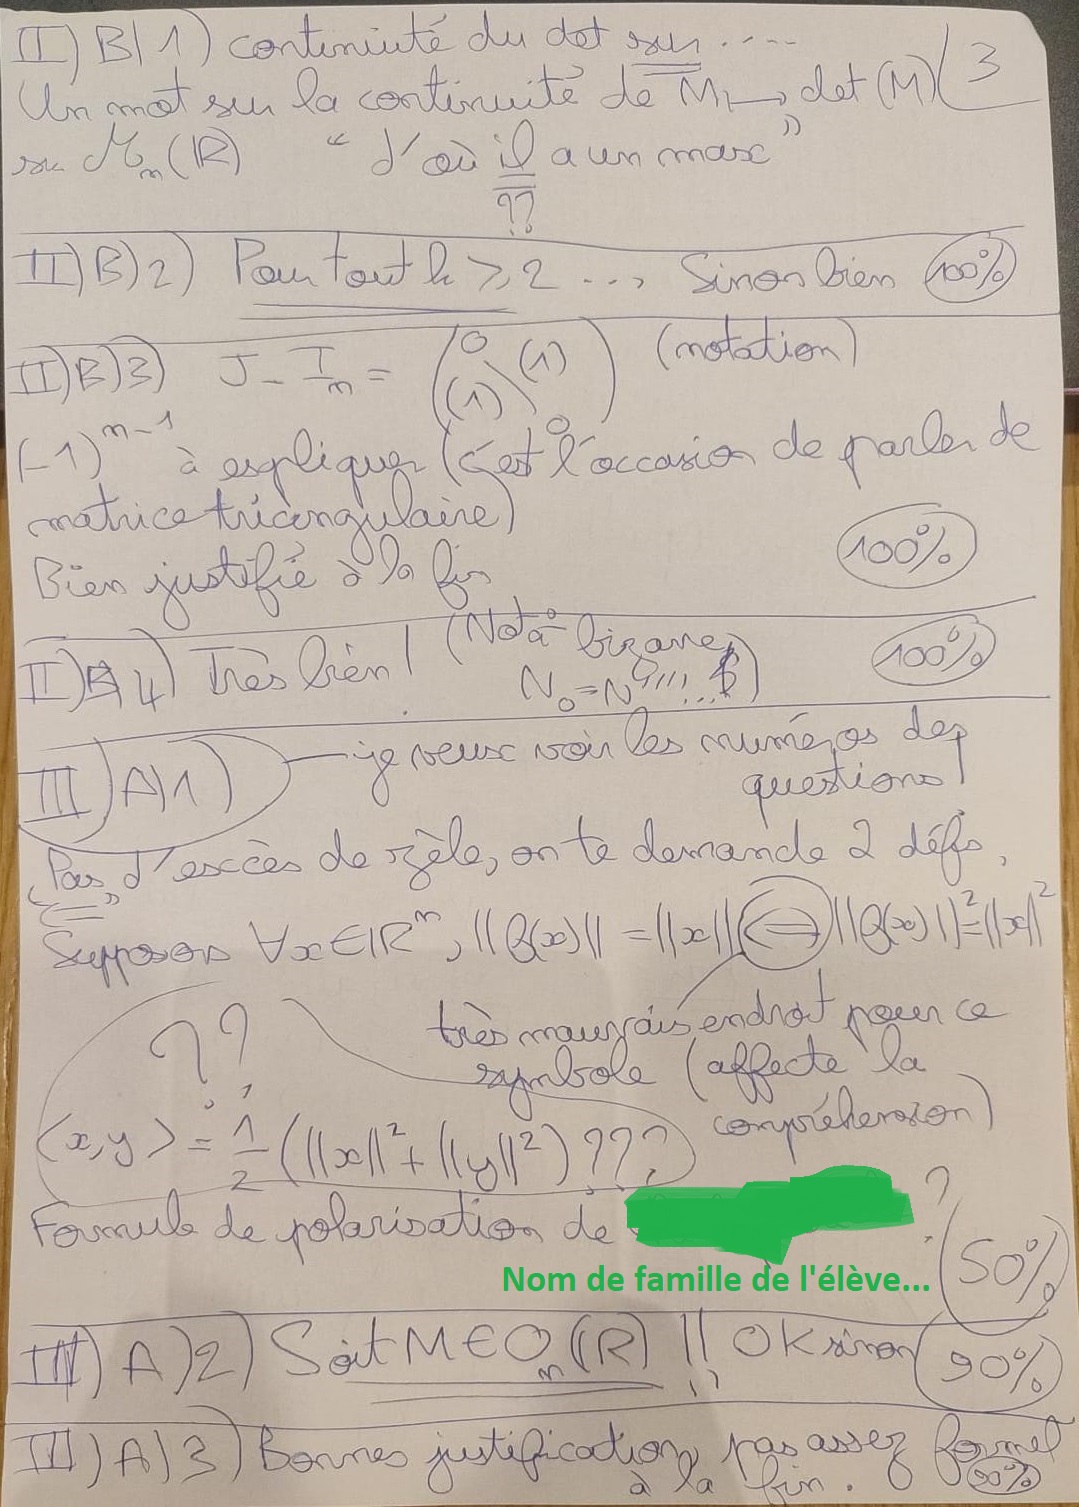 II) B) 1) continuité du det sur ....
Un mot sur la continuité de M ↦ det(M) 3
sur Mn(R) "d'où il a un max"
??
II) B) 2) Pour tout k ≥ 2 ... Sinon bien 100%
II) B) 3) J - In = (0 (1) (1) 0) (notation)
(-1)^{n-1} à expliquer (c'est l'occasion de parler de
matrice triangulaire)
Bien justifié à la fin 100%
II) B) 4) Très bien! (Nota° bizarre, 100%
N0 = N
III) A) 1) je veux voir les numéros des
questions!
"Pas" d'excès de zèle, on te demande 2 défs,
Supposons ∀x∈IR^n, ||f(x)|| = ||x|| ⇔ ||f(x)||² = ||x||²
?? très mauvais endroit pour ce
symbole (affecte la
compréhension)
<x,y> = 1/2 (||x||² + ||y||²) ???
Formule de polarisation de ?
Nom de famille de l'élève...
50%
III) A) 2) Soit M∈On(R) !! OK sinon 90%
III) A) 3) Bonnes justifications, pas assez formel
à la fin. 90%